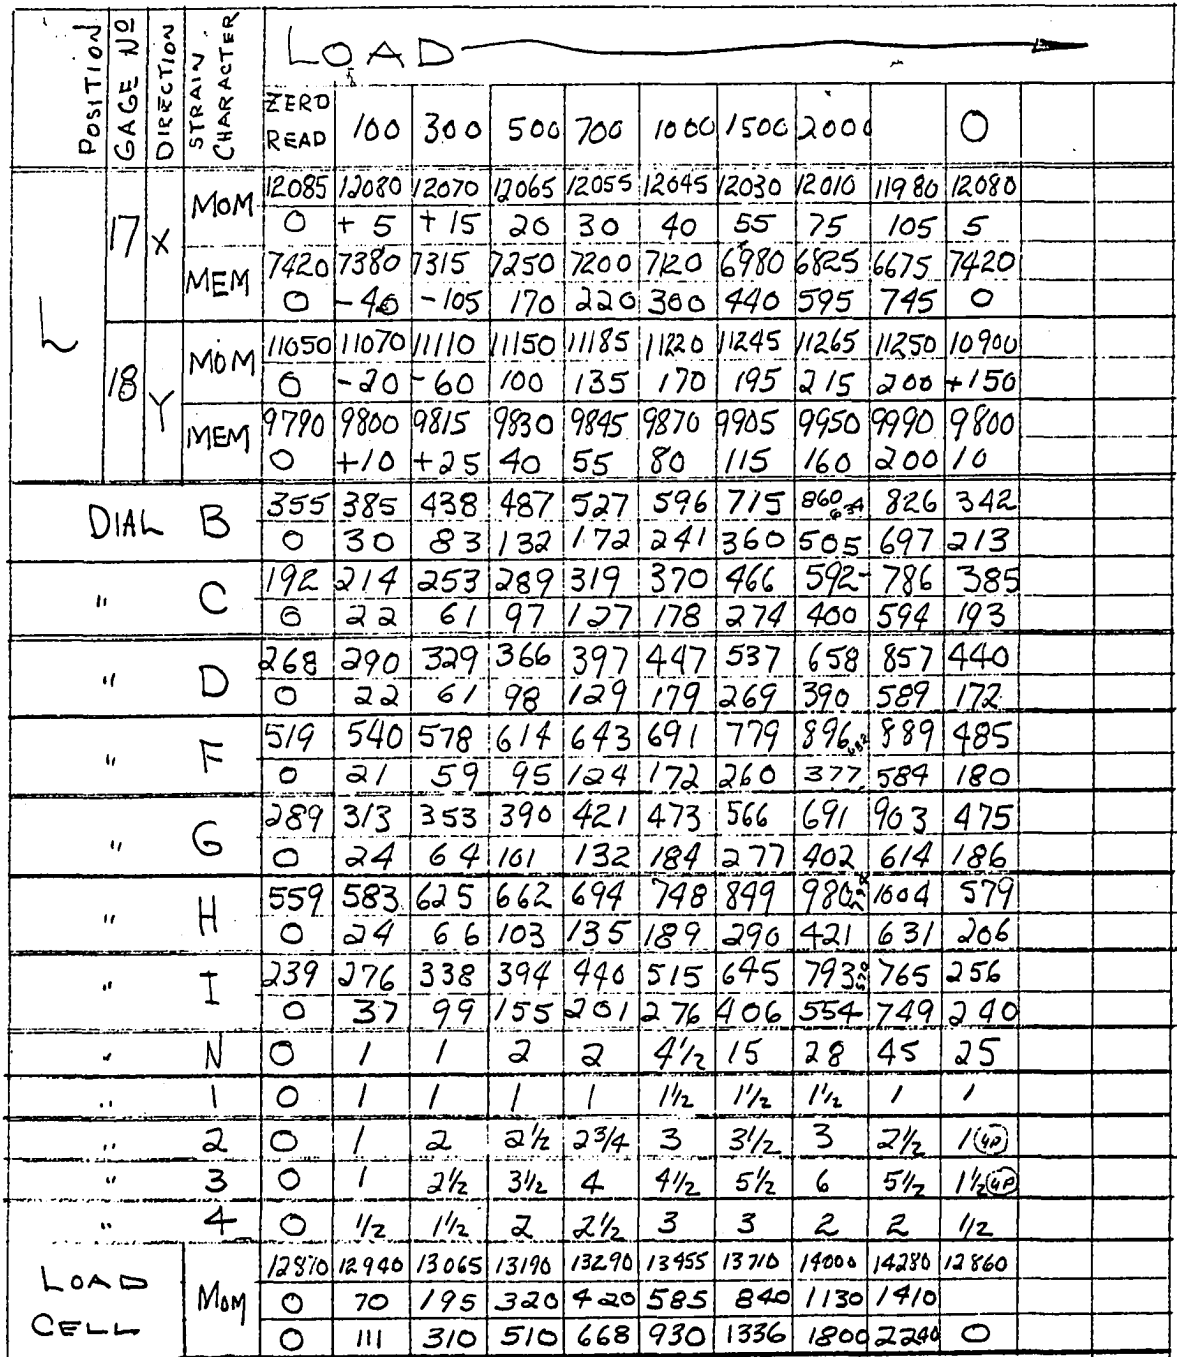 POSITION GAGE NO DIRECTION STRAIN CHARACTER LOAD
ZERO READ 100 300 500 700 1000 1500 2000 0
L 17 X MOM 12085 12080 12070 12065 12055 12045 12030 12010 11980 12080
0 + 5 + 15 20 30 40 55 75 105 5
MEM 7420 7380 7315 7250 7200 7120 6980 6825 6675 7420
0 -40 -105 170 220 300 440 595 745 0
18 Y MOM 11050 11070 11110 11150 11185 11220 11245 11265 11250 10900
0 -20 -60 100 135 170 195 215 200 +150
MEM 9790 9800 9815 9830 9845 9870 9905 9950 9990 9800
0 +10 +25 40 55 80 115 160 200 10
DIAL B 355 385 438 487 527 596 715 860 634 826 342
0 30 83 132 172 241 360 505 697 213
" C 192 214 253 289 319 370 466 592- 786 385
0 22 61 97 127 178 274 400 594 193
" D 268 290 329 366 397 447 537 658 857 440
0 22 61 98 129 179 269 390 589 172
" F 519 540 578 614 643 691 779 896 889 485
0 21 59 95 124 172 260 377 584 180
" G 289 313 353 390 421 473 566 691 903 475
0 24 64 101 132 184 277 402 614 186
" H 559 583 625 662 694 748 849 980 1004 579
0 24 66 103 135 189 290 421 631 206
" I 239 276 338 394 440 515 645 793 765 256
0 37 99 155 201 276 406 554 749 240
" N 0 1 1 2 2 4 1/2 15 28 45 25
" 1 0 1 1 1 1 1 1/2 1 1/2 1 1/2 1 1
" 2 0 1 2 2 1/2 2 3/4 3 3 1/2 3 2 1/2 1 (UP)
" 3 0 1 2 1/2 3 1/2 4 4 1/2 5 1/2 6 5 1/2 1 1/2 (UP)
" 4 0 1/2 1 1/2 2 2 1/2 3 3 2 2 1/2
LOAD CELL MOM 12870 12940 13065 13190 13290 13455 13710 14000 14280 12860
0 70 195 320 420 585 840 1130 1410
0 111 310 510 668 930 1336 1800 2240 0